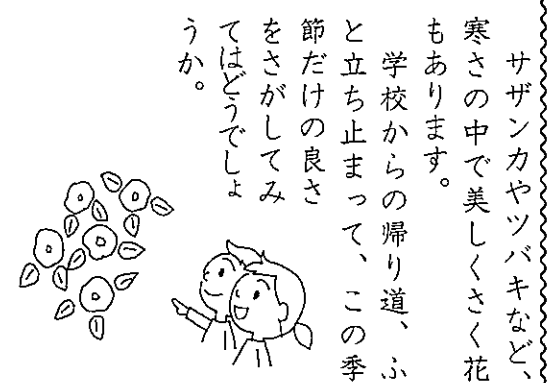 サザンカやツバキなど、
寒さの中で美しくさく花
もあります。
学校からの帰り道、ふ
と立ち止まって、この季
節だけの良さ
をさがしてみ
てはどうでしょ
うか。